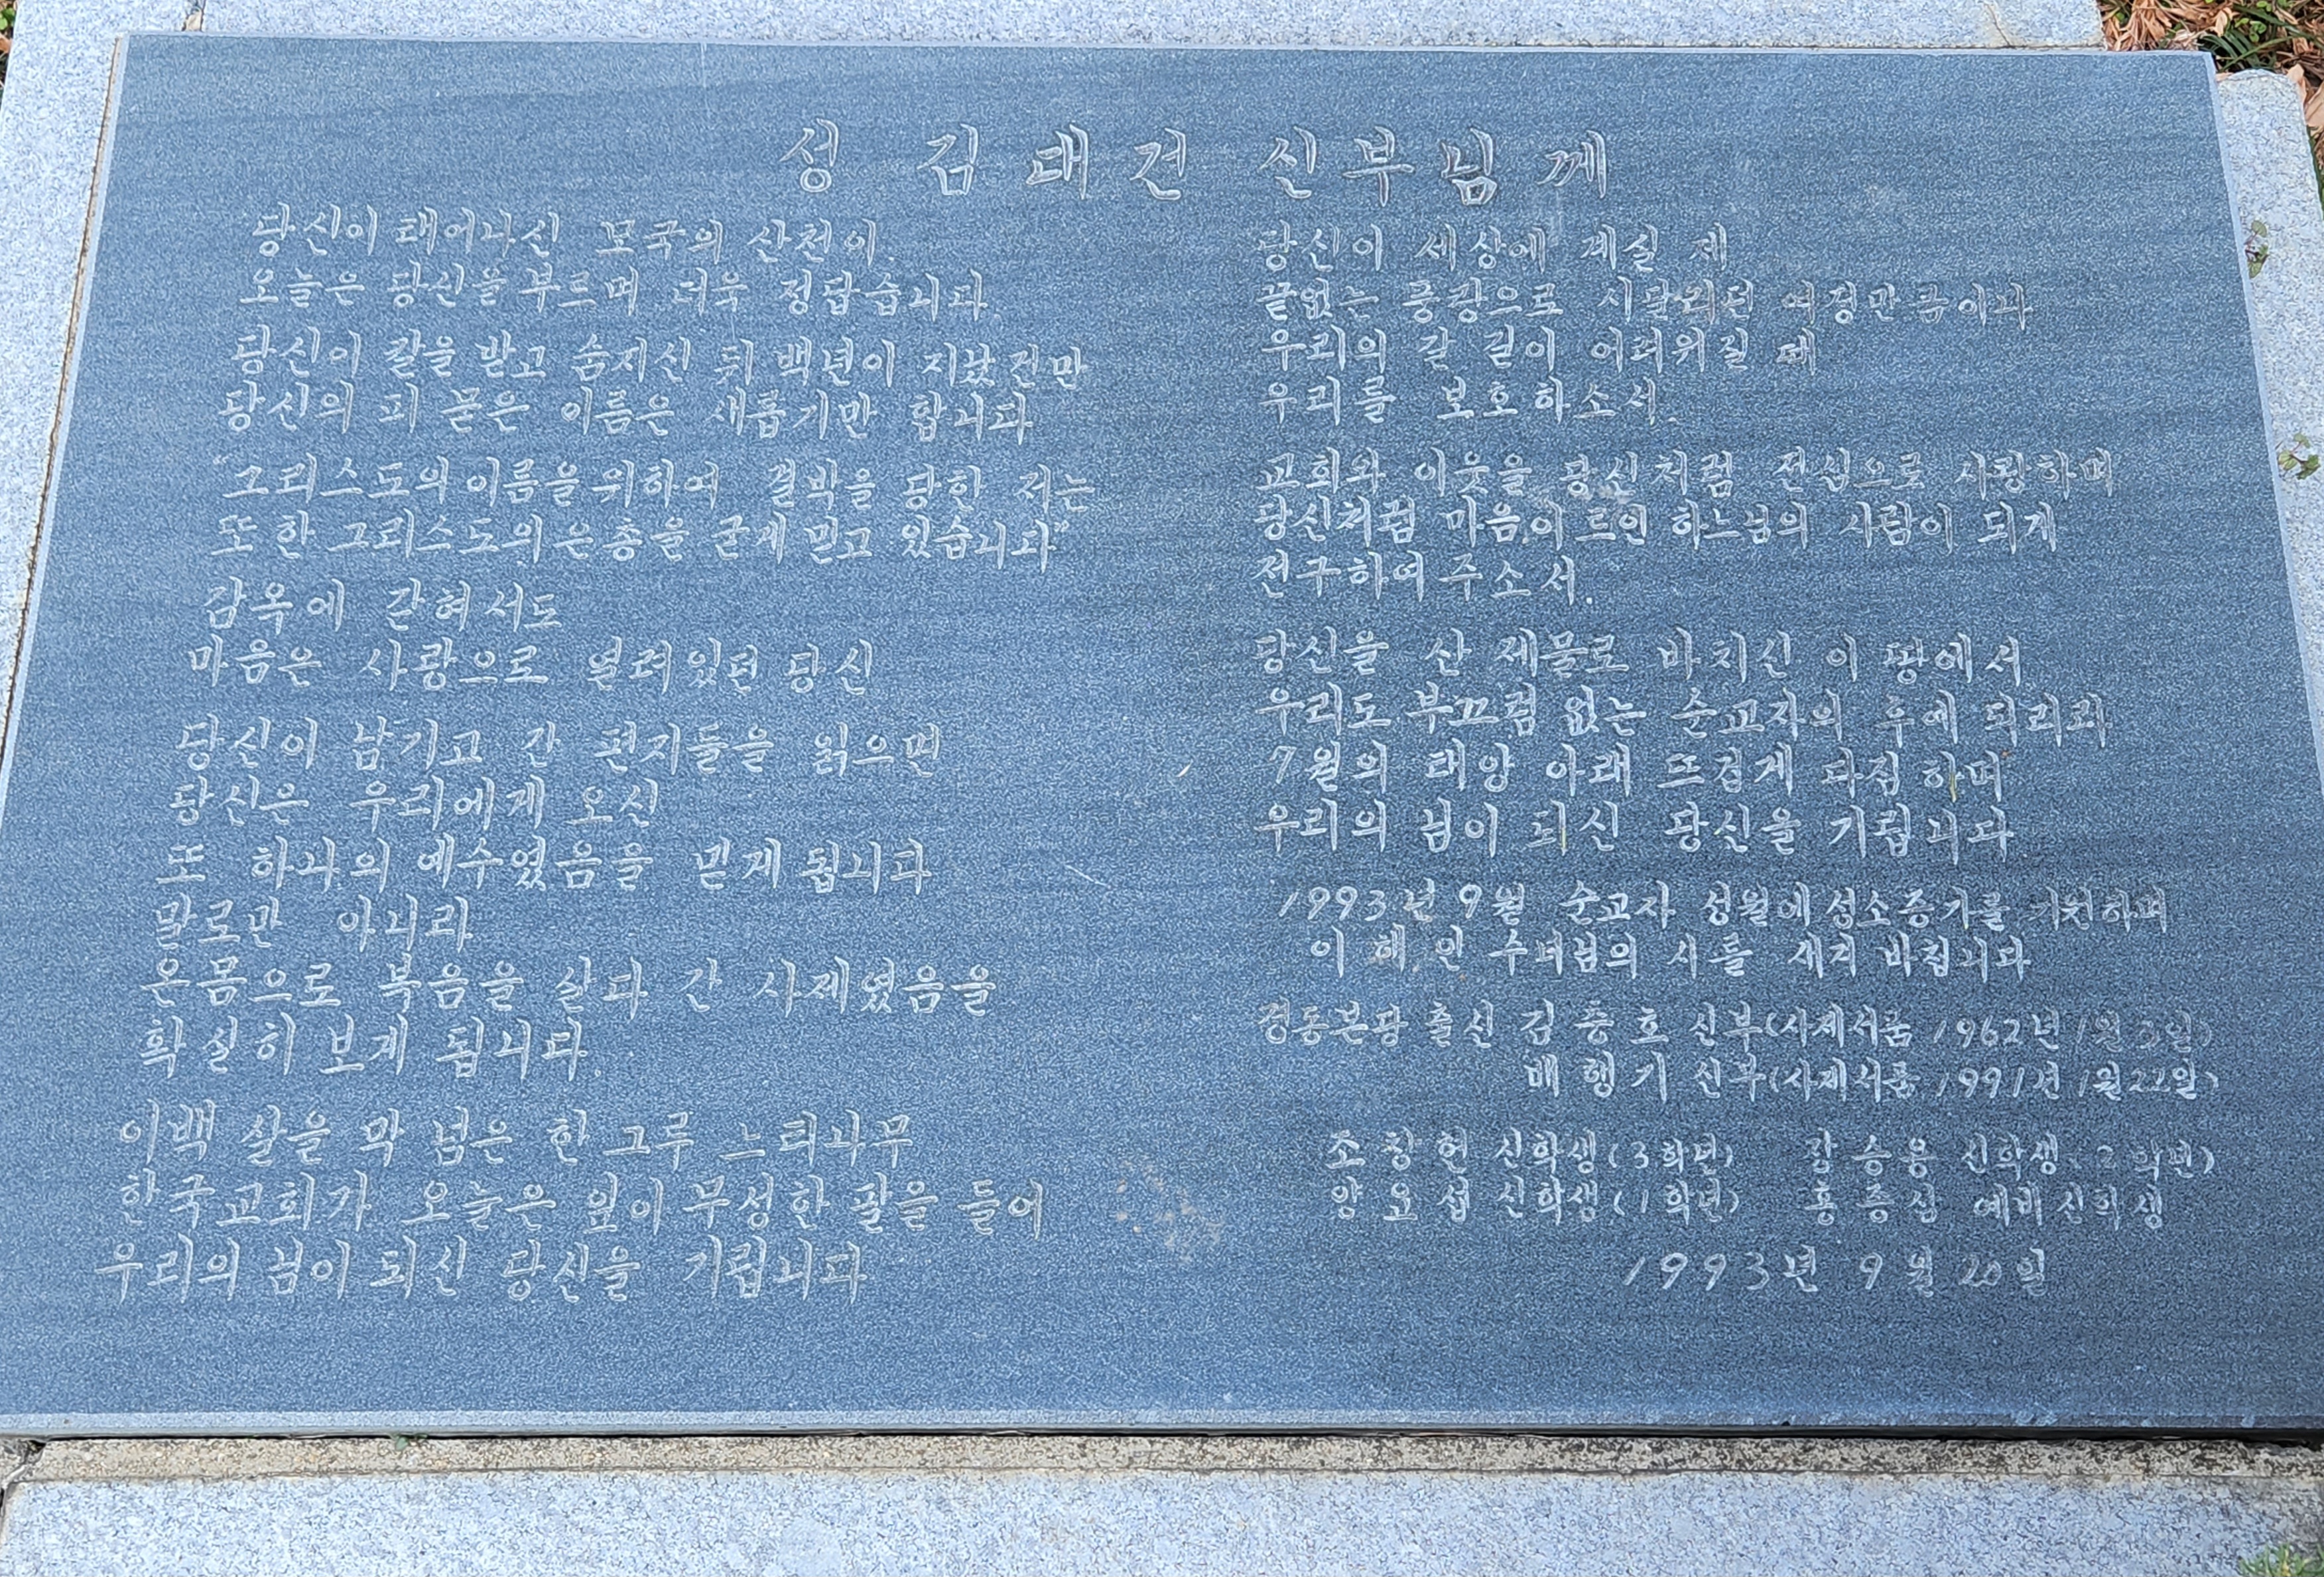 성 김대건 신부님께
당신이 태어나신 모국의 산천이
오늘은 당신을 부르며 더욱 정답습니다.
당신이 칼을 받고 숨지신 뒤 백년이 지났건만
당신의 피 묻은 이름은 새롭기만 합니다
"그리스도의 이름을 위하여 결박을 당한 저는
또한 그리스도의 은총을 굳게 믿고 있습니다"
감옥에 갇혀서도
마음은 사랑으로 열려있던 당신
당신이 남기고 간 편지들을 읽으면
당신은 우리에게 오신
또 하나의 예수였음을 믿게 됩니다
말로만 아니라
온몸으로 복음을 살다 간 사제였음을
확실히 보게 됩니다.
이백 살을 막 넘은 한 그루 느티나무
한국교회가 오늘은 잎이 무성한 팔을 들어
우리의 님이 되신 당신을 기립니다
당신이 세상에 계실 제
끝없는 풍랑으로 시달리던 여정만큼이나
우리의 갈 길이 어려워질 때
우리를 보호하소서.
교회와 이웃을 당신처럼 전심으로 사랑하며
당신처럼 마음이 트인 하느님의 사람이 되게
전구하여 주소서.
당신을 산 제물로 바치신 이 땅에서
우리도 부끄럼 없는 순교자의 후예 되리라
7월의 태양 아래 뜨겁게 다짐하며
우리의 님이 되신 당신을 기립니다
1993년 9월 순교자 성월에 성소증가를 기원하며
이해인 수녀님의 시를 새겨 바칩니다
경동본당 출신 김충호 신부(사제서품 1962년 1월 일)
배행기 신부(사제서품 1991년 1월 22일)
조창현 신학생(3학년) 강승용 신학생(2학년)
양요섭 신학생(1학년) 예비신학생
1993년 9월 20일